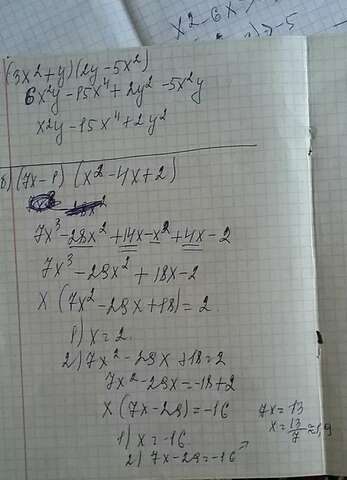 x2-6x
≥-5
(3x²+y)(2y-5x²)
6x²y-15x⁴+2y²-5x²y
x²y-15x⁴+2y²
б) (7x-1) (x²-4x+2)
7x³-28x²+14x-x²+4x-2
7x³-29x²+18x-2
x (7x²-29x+18)=2
1) x=2
2) 7x²-29x+18=2
7x²-29x=-18+2
x(7x-29)=-16
1) x=-16
2) 7x-29=-16
7x=13
x=13/7≈1,9